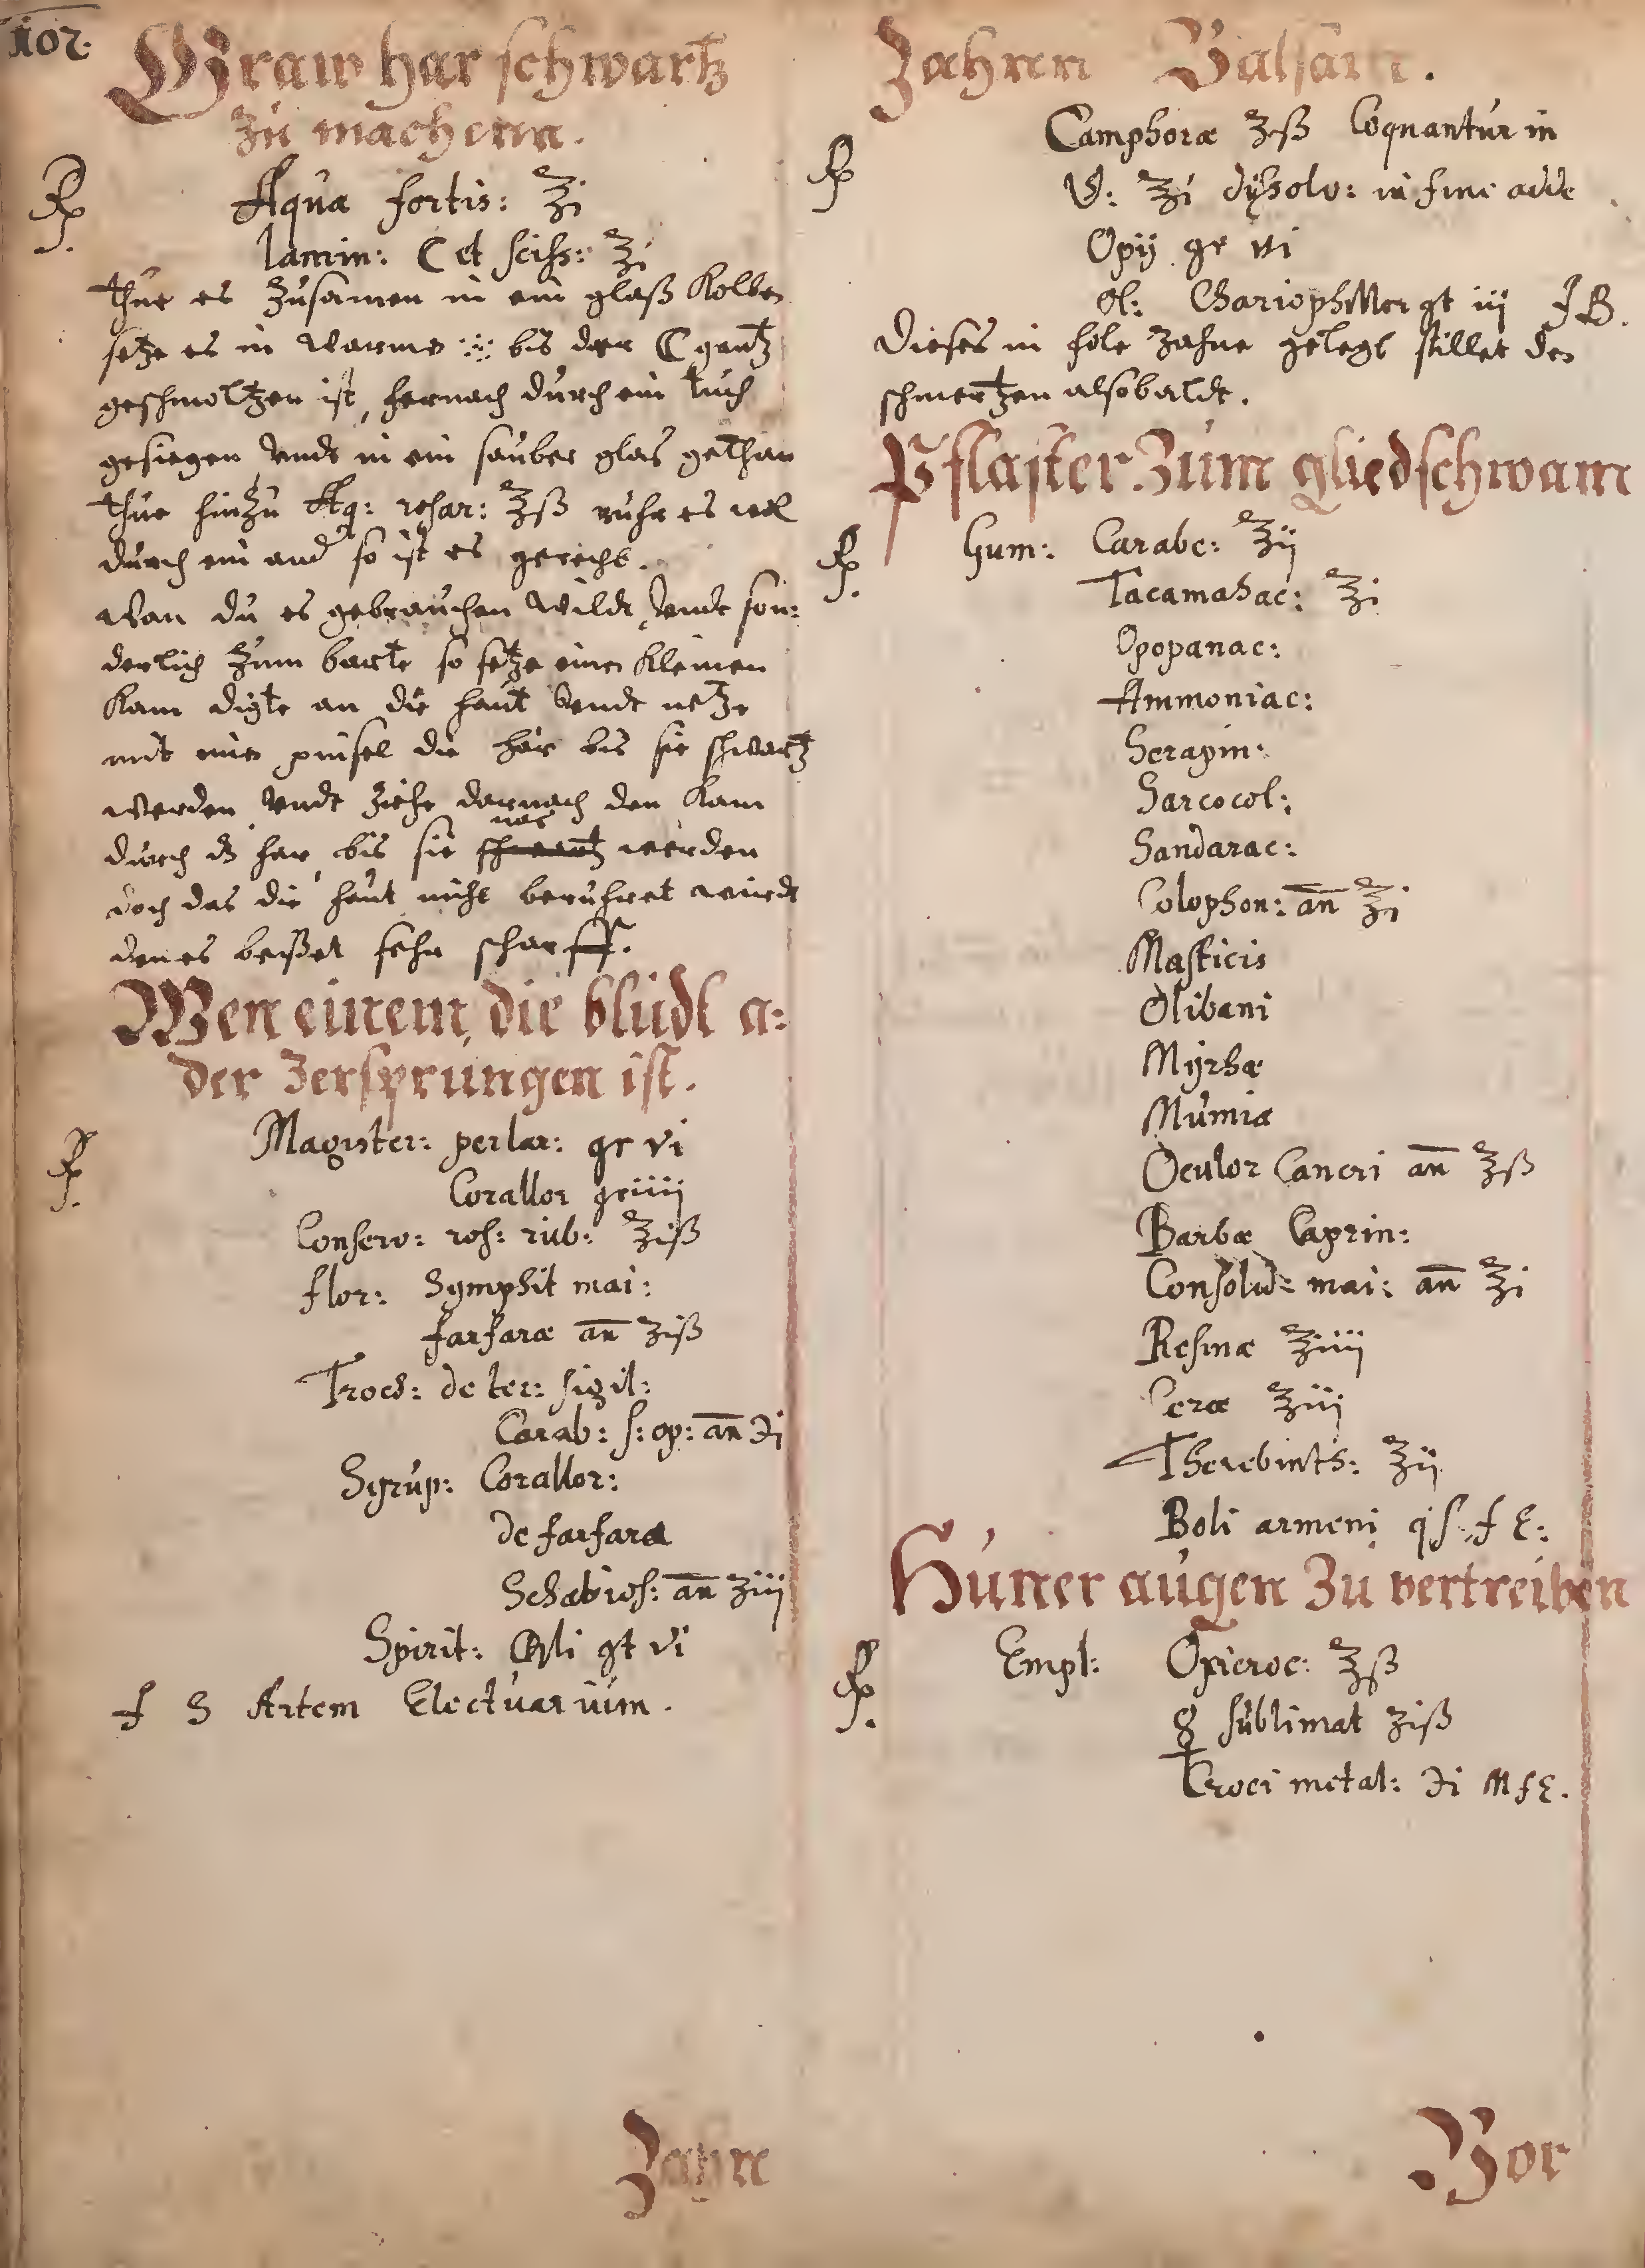 102.
Graw har schwartz
zu machenn.
Rp.
Aqua fortis: ℥i
lamin: ☾ et sciss: ℥i
thue es zusamen in ein glaß Kolben
setze es in warme ∴ bis der ☾ gantz
geschmoltzen ist, hernach durch ein tuch
gesiegen vndt in ein sauber glas gethan
thue hinzu Aq: rosar: ℥ß ruhr es wol
durch ein and so ist es gerecht.
Wan du es gebrauchen wildt, vndt son:
derlich zum barte so setze einen kleinen
Kam digte an die haut vndt netze
mit einen pinsel die har bis sie schwartz
werden vndt ziehe darnach den Kam
durch dz har, bis sie schwartz nas werden
doch das die haut nicht beruhret wirdt
den es beißet sehr scharff.
Wen einem die bludt a:
der Zersprungen ist.
Rp.
Magister: perlar: gr vi
Corallor griiij
Conserv: ros: rub: ℥iß
flor: Symphit mai:
farfaræ an̄ ʒiß
Troch: de ter: sigil:
Carab: s: op: an̄ ℈i
Syrup: Corallor:
de farfara
Schabios: an̄ ʒiij
Spirit: ⊕li gt vi
f S Artem Electuarium.
Zahn
Zahnn Balsam.
Rp.
Camphoræ ʒß Coquantur in
V: ℥i dysolv: in fine adde
Opij gr vi
ol: Chariophiller gt iij f B.
Dieses in hole zahne gelegt stillet den
schmertzen alsobaldt.
Pflaster Zum gliedschwam
Rp.
Gum: Carabe: ℥ij
Tacamahac: ℥i
Opopanac:
Ammoniac:
Serapin:
Sarcocol:
Sandarac:
Colophon: an̄ ℥i
Masticis
Olibani
Myrhæ
Mumiæ
Oculor Cancri an̄ ℥ß
Barbæ Caprin:
Consolid: mai: an̄ ℥i
Resinæ ℥iiij
Ceræ ℥iij
Therebinth: ℥ij
Boli armeni qs. f E:
Huner augen Zu vertreiben
Rp.
Empl: Oxicroc: ℥ß
☿ sublimat ʒiß
Croci metal: ℈i M f E.
Vor